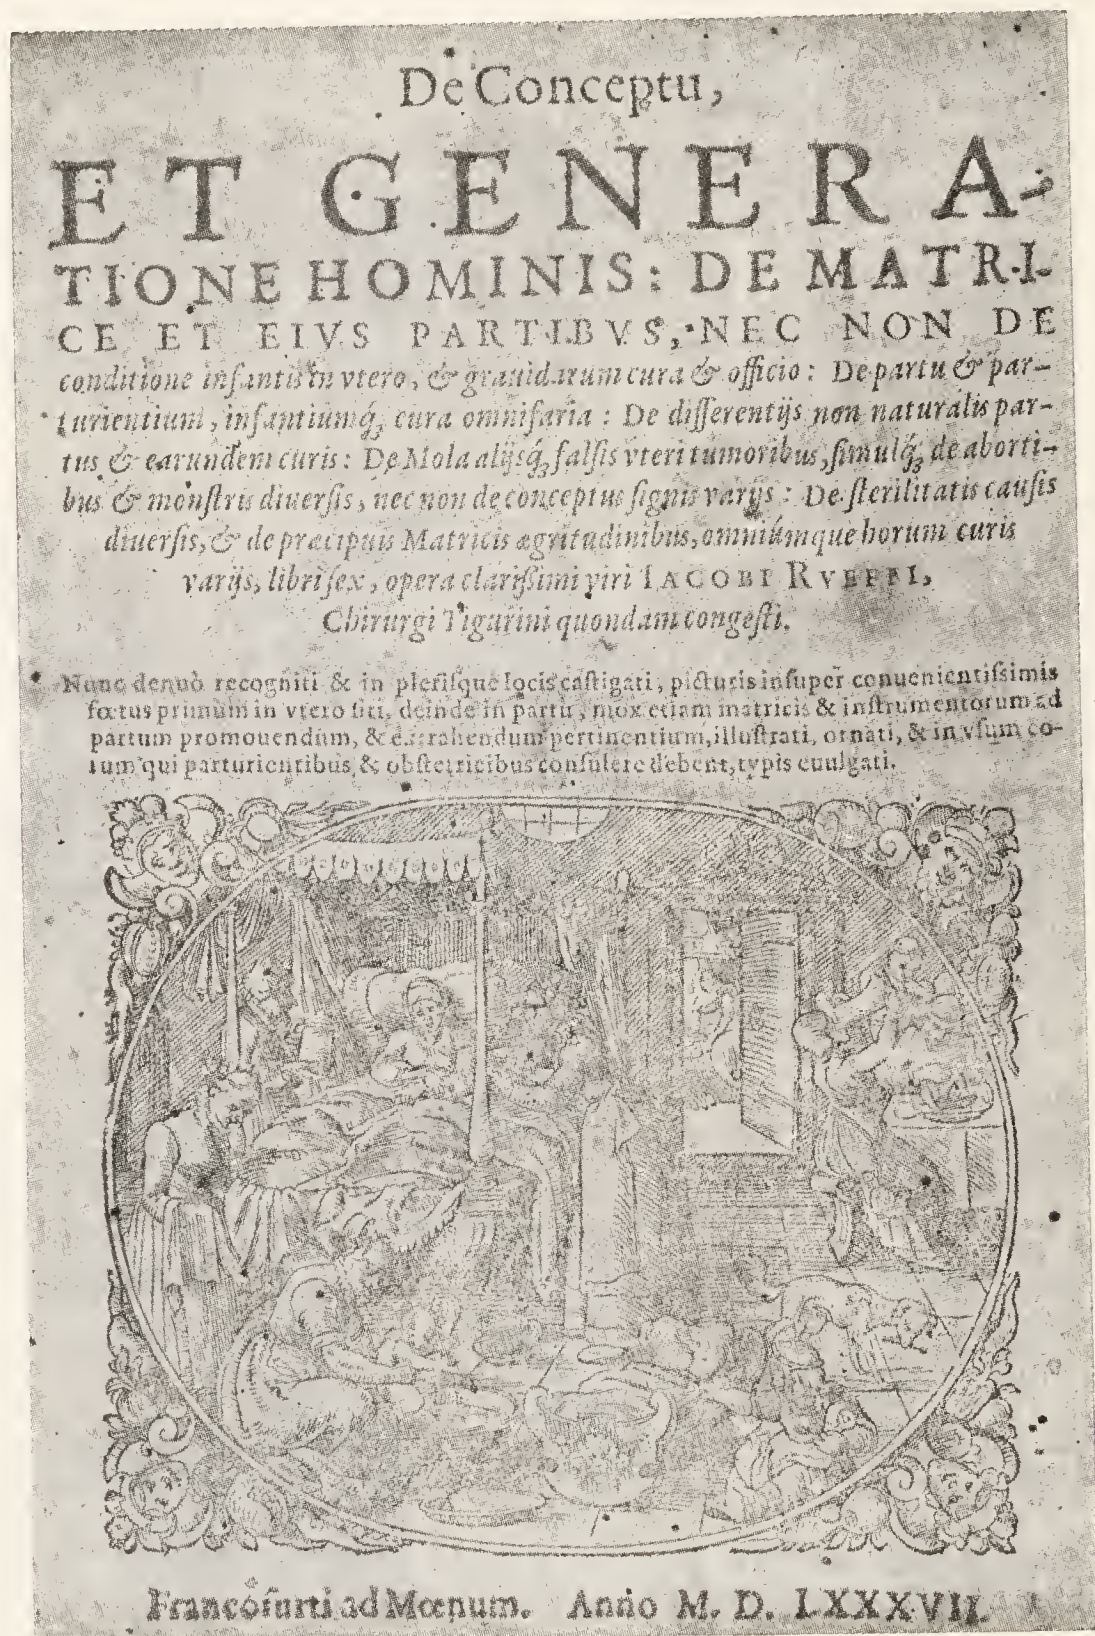 De Conceptu,
ET GENERA-
TIONE HOMINIS: DE MATRI-
CE ET EIVS PARTIBVS, NEC NON DE
conditione infantis in vtero, & grauidarum cura & officio: De partu & par-
turientium, infantiumq́; cura omnifaria: De differentijs non naturalis par-
tus & earundem curis: De Mola alijsq́; falsis vteri tumoribus, simulq́; de aborti-
bus & monstris diuersis, nec non de conceptus signis varijs: De sterilitatis causis
diuersis, & de præcipuis Matricis ægritudinibus, omniúmque horum curis
varijs, libri sex, opera clarissimi viri IACOBI RVEFFI,
Chirurgi Tigurini quondam congesti.
Nunc denuò recogniti & in plerisque locis castigati, picturis insuper conuenientissimis
fœtus primùm in vtero siti, deinde in partu, mox etiam matricis & instrumentorum ad
partum promouendum, & extrahendum pertinentium, illustrati, ornati, & in vsum eo-
rum qui parturientibus & obstetricibus consulere debent, typis euulgati.
Francofurti ad Mœnum. Anno M. D. LXXXVII.